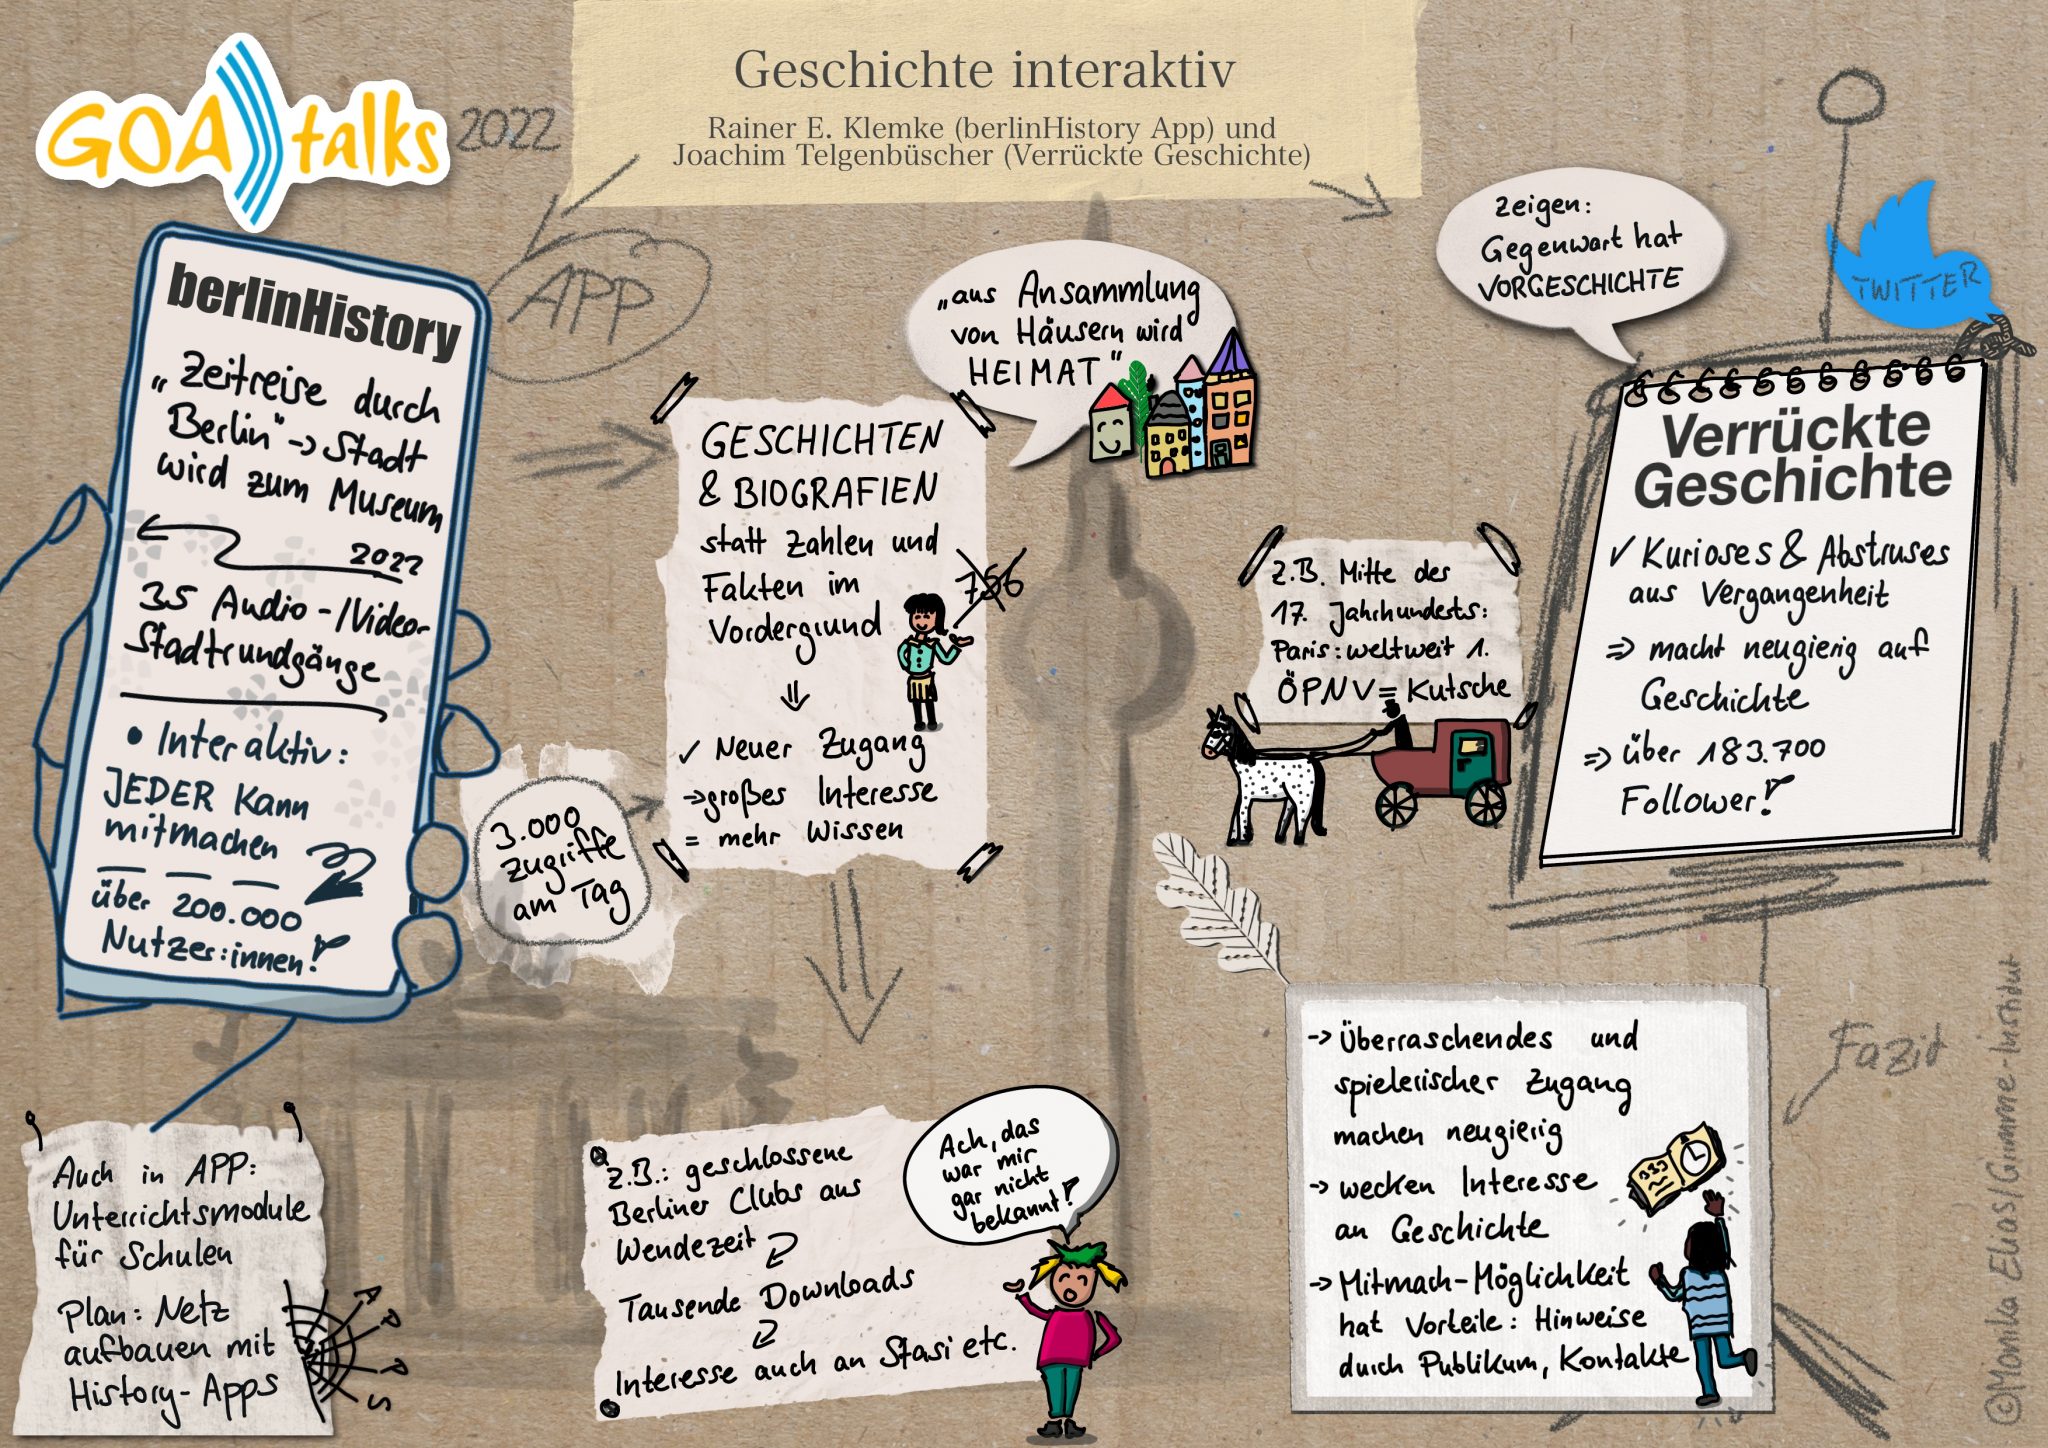 GOA talks 2022
Geschichte interaktiv
Rainer E. Klemke (berlinHistory App) und
Joachim Telgenbüscher (Verrückte Geschichte)
APP
berlinHistory
„Zeitreise durch
Berlin" -> Stadt
wird zum Museum
2022
35 Audio-/Video-
Stadtrundgänge
• Interaktiv:
JEDER kann
mitmachen
über 200.000
Nutzer:innen!
3.000
Zugriffe
am Tag
Auch in APP:
Unterrichtsmodule
für Schulen
Plan: Netz
aufbauen mit
History-Apps
APPS
„aus Ansammlung
von Häusern wird
HEIMAT"
GESCHICHTEN
& BIOGRAFIEN
statt Zahlen und
Fakten im
Vordergrund
756
⇓
✓ Neuer Zugang
-> großes Interesse
= mehr Wissen
z.B.: geschlossene
Berliner Clubs aus
Wendezeit
Tausende Downloads
Interesse auch an Stasi etc.
Ach, das
war mir
gar nicht
bekannt!
zeigen:
Gegenwart hat
VORGESCHICHTE
TWITTER
Verrückte
Geschichte
✓ Kurioses & Abstruses
aus Vergangenheit
=> macht neugierig auf
Geschichte
=> über 183.700
Follower!
z.B. Mitte des
17. Jahrhunderts:
Paris: weltweit 1.
ÖPNV = Kutsche
Fazit
-> Überraschendes und
spielerischer Zugang
machen neugierig
-> wecken Interesse
an Geschichte
-> Mitmach-Möglichkeit
hat Vorteile: Hinweise
durch Publikum, Kontakte
©Monika Elias/Grimme-Institut